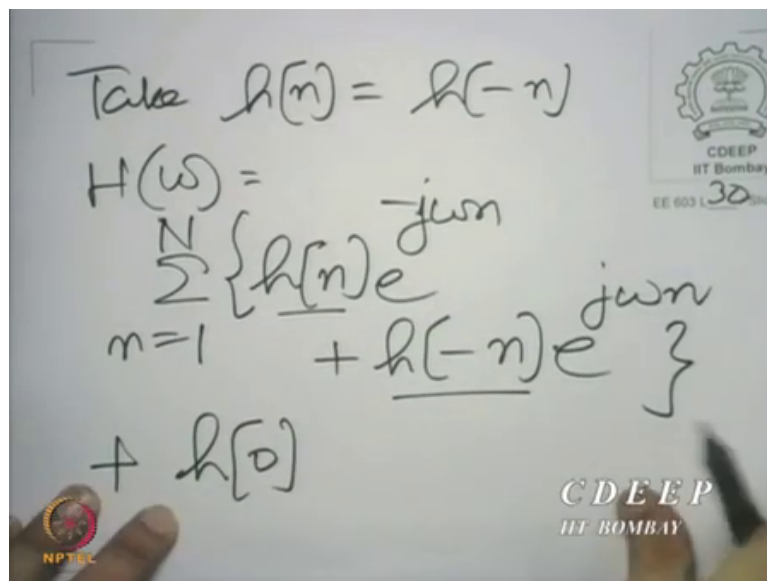 Take h[n] = h[-n]
CDEEP
IIT Bombay
EE 603 L 30
H(ω) =
N
Σ {h[n]e^-jωn
n=1 + h[-n]e^jωn }
+ h[0]
CDEEP
IIT BOMBAY
NPTEL